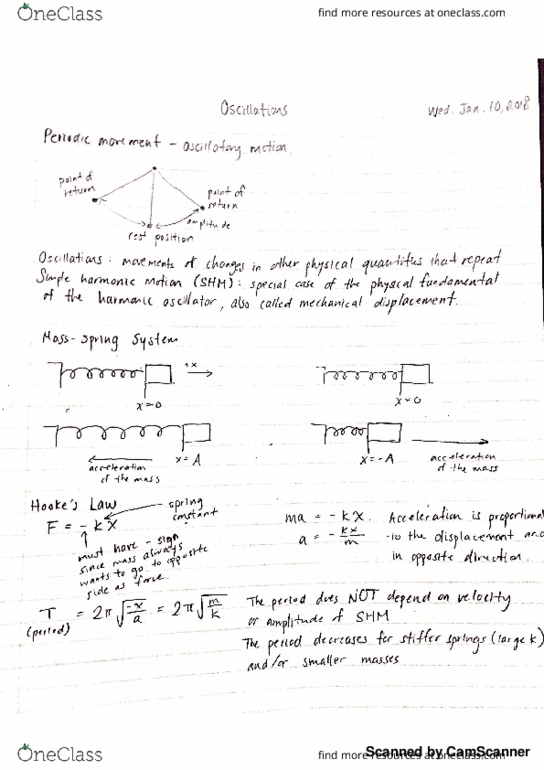 OneClass
find more resources at oneclass.com
Oscillations
Wed. Jan. 10, 2018
Periodic movement - oscillatory motion.
point of return
point of return
amplitude
rest position
Oscillations: movements of changes in other physical quantities that repeat
Simple harmonic Motion (SHM): special case of the physical fundamental
of the harmonic oscillator, also called mechanical displacement.
Mass-spring System
+x
x=0
x=0
acceleration of the mass
x=A
x=-A
acceleration of the mass
Hooke's Law
F = -kx
spring constant
must have - sign
since mass always
wants to go to opposite
side as force.
ma = -kx.
a = -kx/m
Acceleration is proportional
to the displacement and
in opposite direction.
T = 2π√(-x/a) = 2π√(m/k)
(period)
The period does NOT depend on velocity
or amplitude of SHM
The period decreases for stiffer springs (large k)
and/or smaller masses
OneClass
find more resources at oneclass.com
Scanned by CamScanner